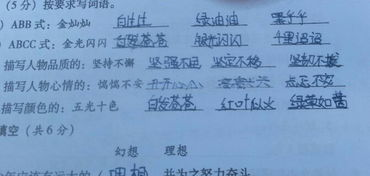 (5分)按要求写词语。
) ABB 式：金灿灿 白生生 绿油油 黑乎乎
) ABCC 式：金光闪闪 白发苍苍 银光闪闪
描写人物品质的：坚持不懈 坚强不屈 坚定不移 坚韧不拔
描写人物心情的：惴惴不安 忐忑不安
描写颜色的：五光十色 白发苍苍 红叶似火 绿草如茵
填空（共6分）
幻想 理想
理想 并为之努力奋斗